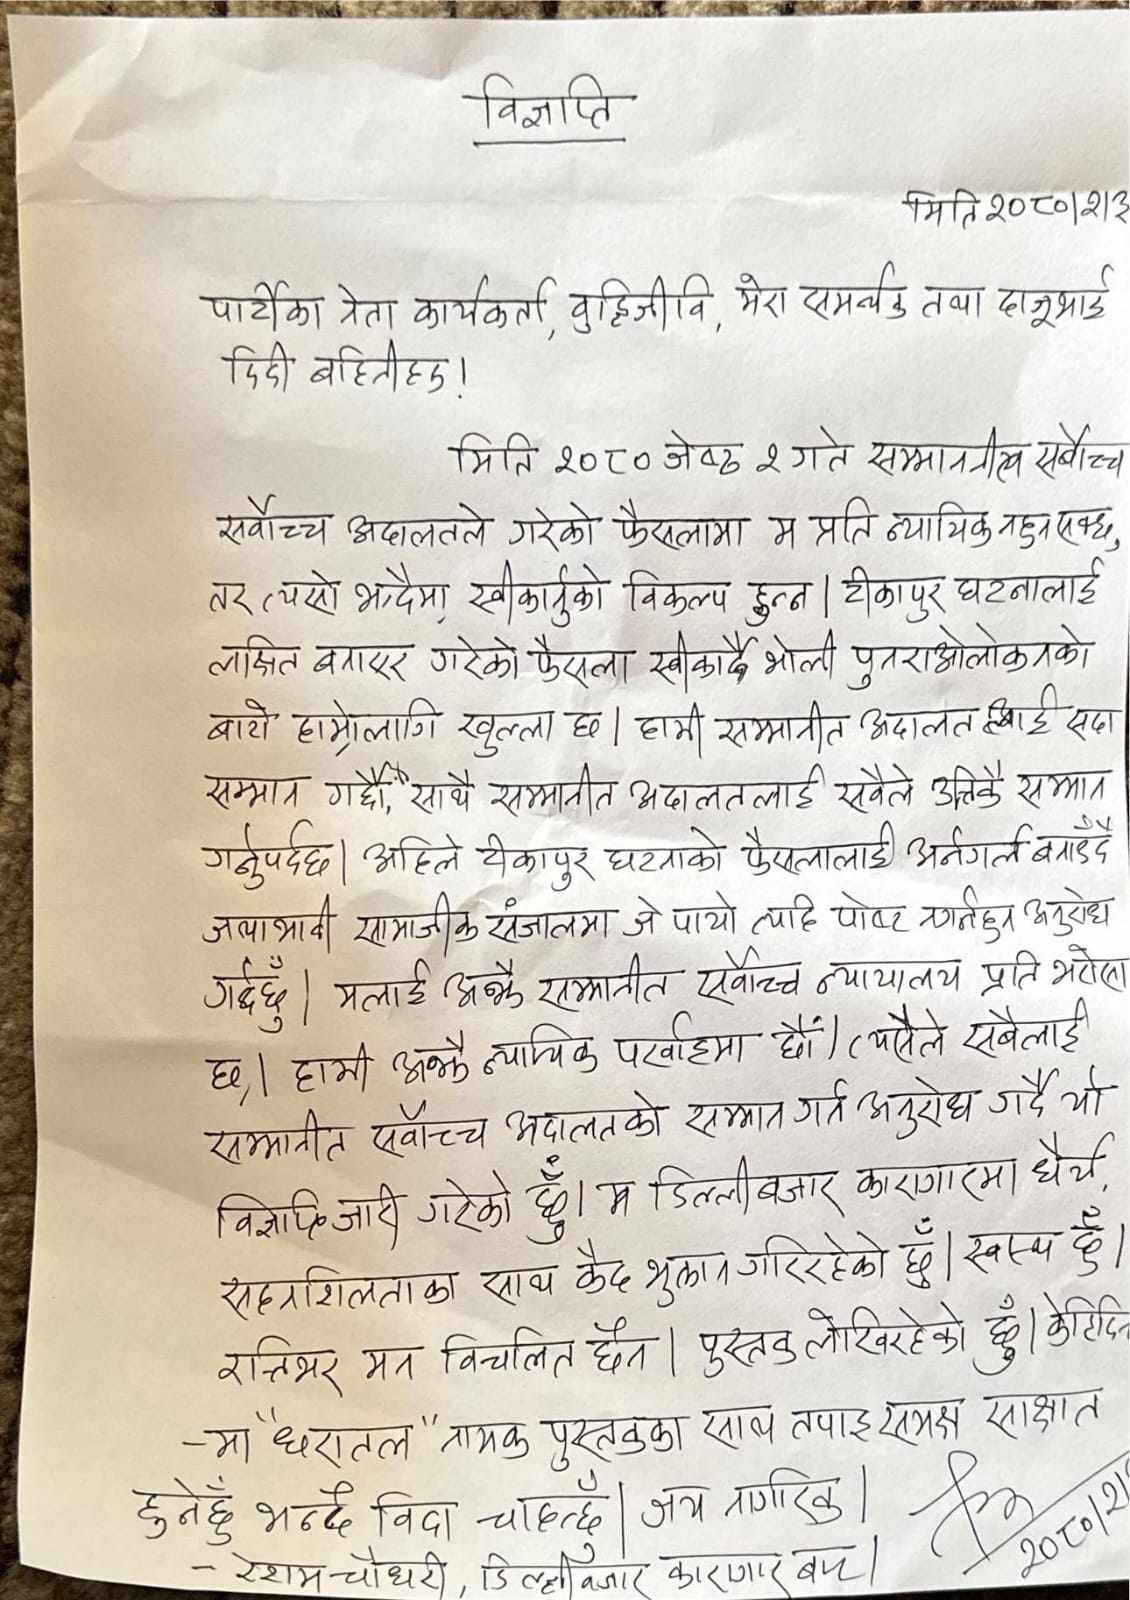 विज्ञप्ति
मिति २०८०।२।३
पार्टीका नेता कार्यकर्ता, वुद्दिजीवि, मेरा समर्थक तथा दाजूभाई
दिदी बहिनीहरु!
मिति २०८० जेष्ठ २ गते सम्माननीय सर्वोच्च
सर्वोच्च अदालतले गरेको फैसलामा म प्रति न्यायिक नहुन सक्छ,
तर त्यसो भन्दैमा स्वीकार्नुको विकल्प हुन्न। टीकापुर घटनालाई
लक्षित बनाएर गरेको फैसला स्वीकार्दै भोली पुनराओलोकनको
बाटो हाम्रोलागि खुल्ला छ। हामी सम्मानीत अदालत लाई सदा
सम्मान गर्दछौँ, साथै सम्मानीत अदालतलाई सवैले उत्तिकै सम्मान
गर्नुपर्दछ। अहिले टीकापुर घटनाको फैसलालाई अर्नगर्ल बनाउँदै
जथाभावी सामाजीक संजालमा जे पायो त्यहि पोष्ट नगर्नहुन अनुरोध
गर्दछुँ। मलाई अझै सम्मानीत सर्वोच्च न्यायालय प्रति भरोसा
छ,। हामी अझै न्यायिक परर्वाहमा छौं। त्यसैले सबैलाई
सम्मानीत सर्वोच्च अदालतको सम्मान गर्न अनुरोध गर्दै यो
विज्ञप्ति जारी गरेको छुँ। म डिल्लीबजार कारागारमा धैर्य,
सहनशिलताका साथ कैद भुक्तान गरिरहेको छुँ। स्वस्थ छुँ।
रत्तिभर मन विचलित छैन। पुस्तक लेखिरहेको छुँ। केहिदिन
-मा "धरातल" नामक पुस्तकका साथ तपाइ समक्ष साक्षात
हुनेछुँ भन्दै विदा चाहन्छुँ। जय नागरिक।
- रेशम चौधरी, डिल्लीबजार कारागार बाट।